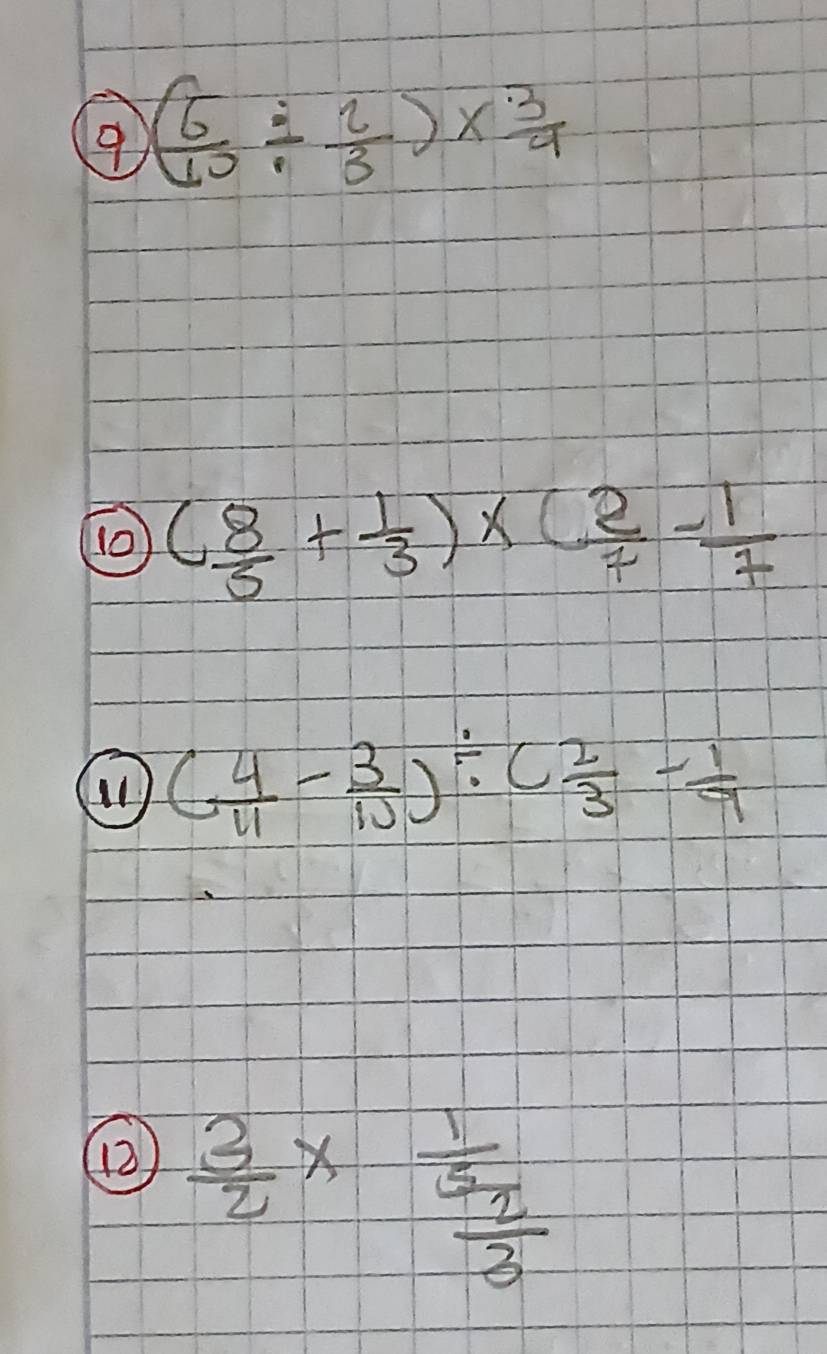 9 (6/10 ÷ 2/3) × 3/9
10 (8/5 + 1/3) × (2/7 - 1/7
11 (4/11 - 3/10) ÷ (2/3 - 1/9
12 3/2 × 1/5 2/3